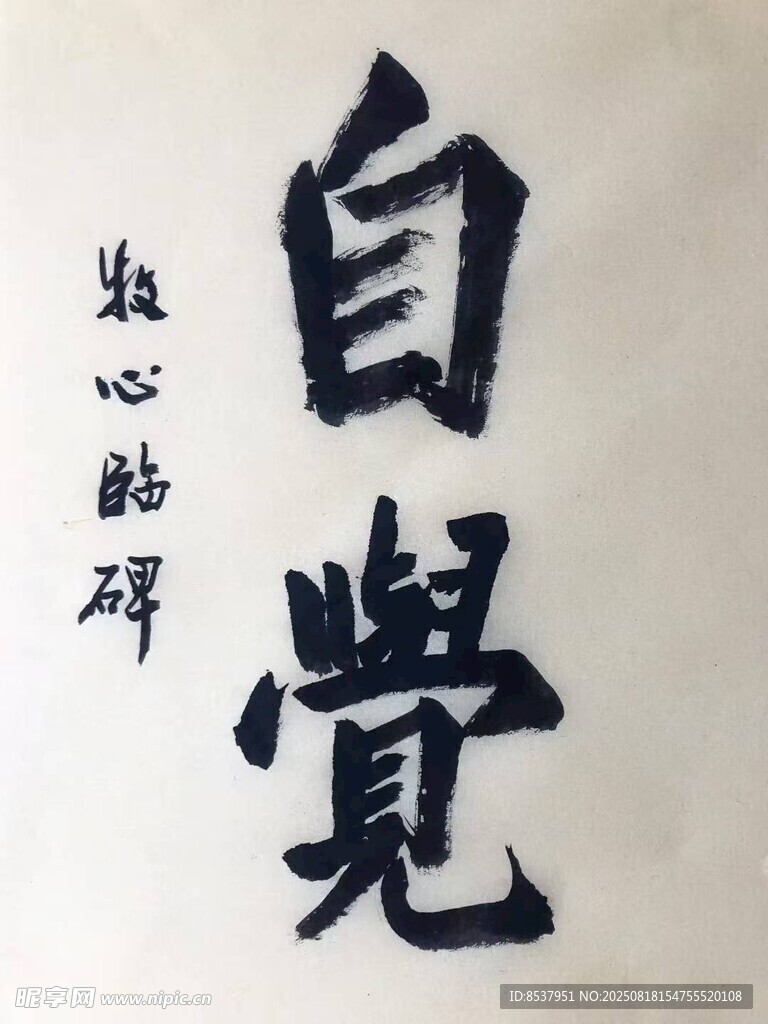 自覺
牧心臨碑
昵享网 www.nipic.cn
ID:8537951 NO:20250818154755520108